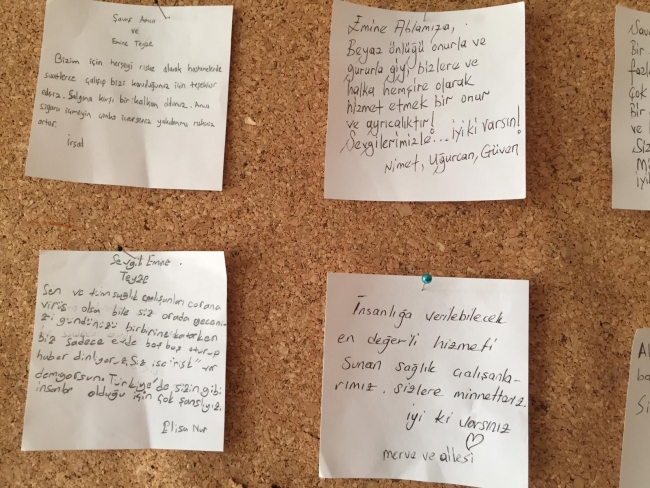 Amca
ve
Emine Teyze
Bizim için herşeyi riske alarak hastanelerde
saatlerce çalışıp bizi koruduğunuz için teşekkür
ederiz. Salgına karşı bir kalkan oldunuz. Ama
sigara içmeyin
artar.
İrşal
Emine Ablamıza,
Beyaz önlüğü onurla ve
gururla giyi, bizlere ve
halka hemşire olarak
hizmet etmek bir onur
ve ayrıcalıktır!
Sevgilerimizle... iyi ki varsın!
Nimet, Uğurcan, Güven
Sevgili Emine
Teyze
Sen ve tüm sağlık çalışanları corona
virüs olsa bile siz orada gecenizi
gündünüzü birbirine katarken
biz sadece evde bot boş oturup
haber dinliyoruz. Siz ise "risk" var
demiyorsun. Türkiye'de sizin gibi
insanlar olduğu için çok şanslıyız.
Elisa Nur
İnsanlığa verilebilecek
en değerli hizmeti
Sunan sağlık çalışanla-
rımız. sizlere minnettarız
iyi ki varsınız
merve ve ailesi
Bir
fazla
Çok
Bir
ve
Siz